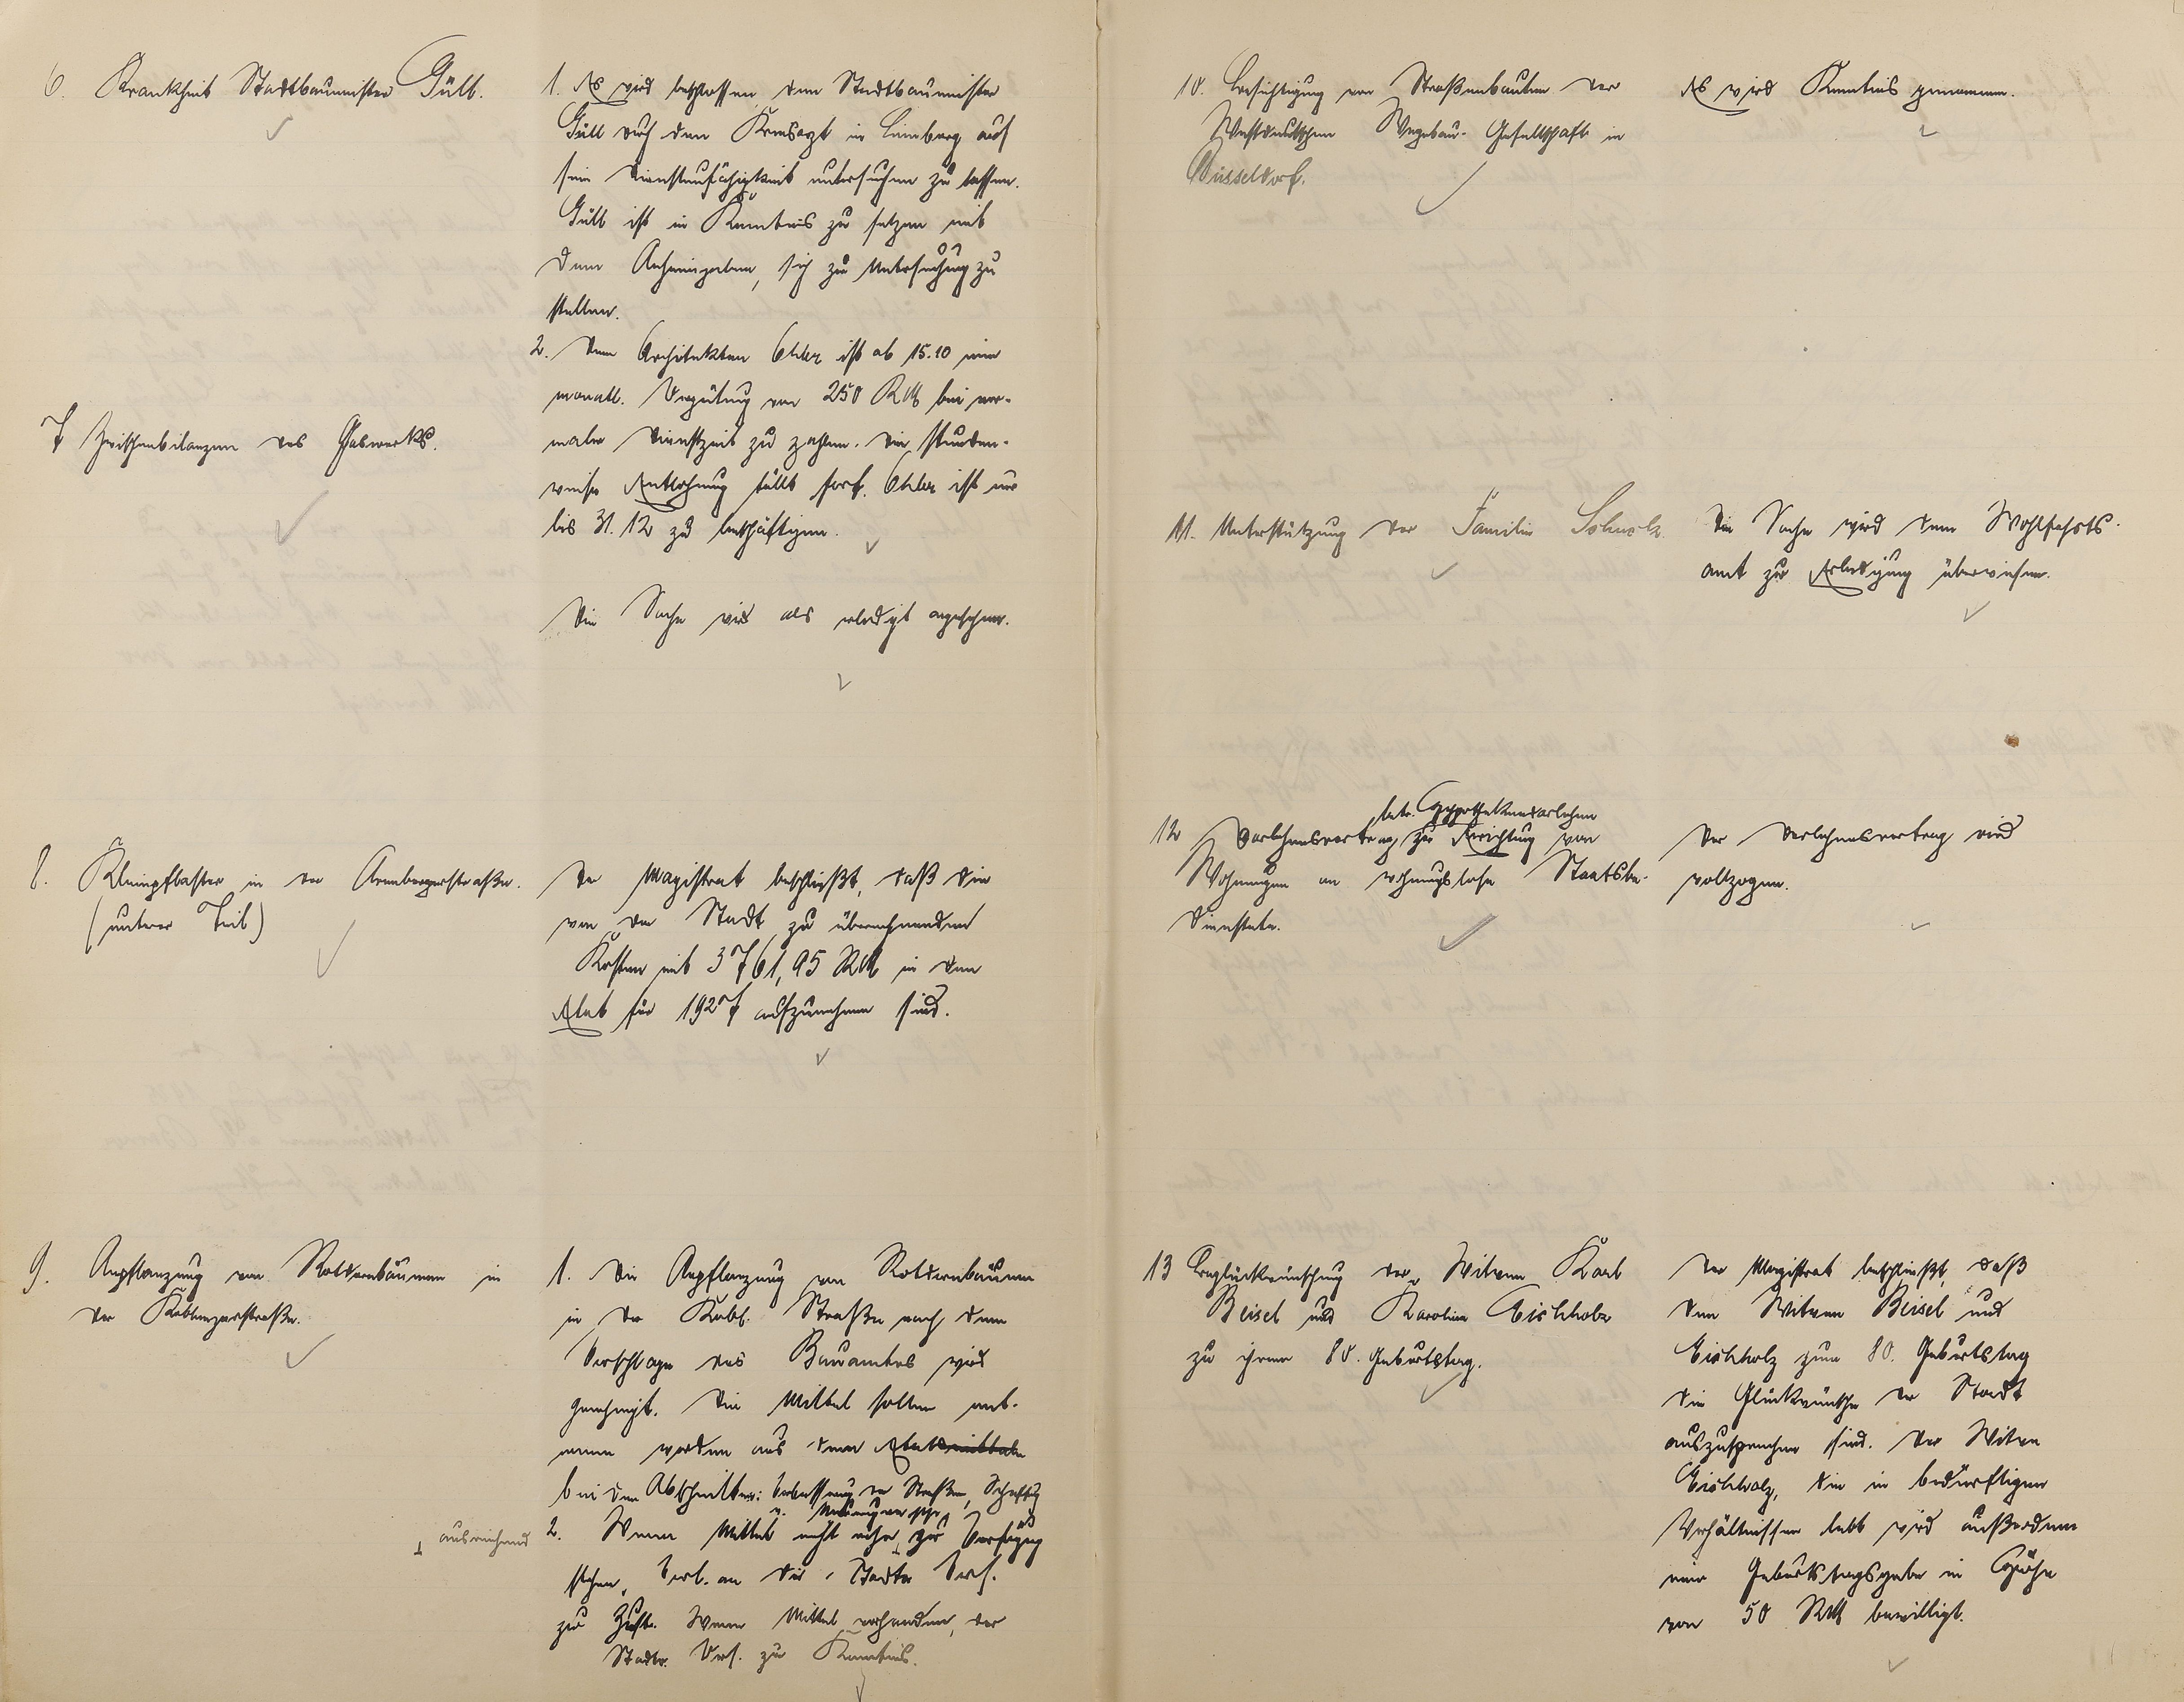 6. Krankheit Stadtbaumeister Güll.
1. Es wird beschlossen den Stadtbaumeister
Güll durch den Kreisarzt in Limburg auf
sein Dienstunfähigkeit untersuchen zu lassen.
Güll ist in Kenntnis zu setzen mit
dem Anheimgeben, sich zur Untersuchung zu
stellen.
2. Dem Architekten ist ab 15.10 eine
monatl. Vergütung von 250 RM bei nor-
maler Dienstzeit zu zahlen. Die stunden-
weise Entlohnung fällt fort. ist nur
bis 31.12 zu beschäftigen.
7 Zwischenbilanzen des Gaswerks.
Die Sache wird als erledigt angesehen.
8. Kleinpflaster in der Arenbergerstraße.
(unterer Teil)
Der Magistrat beschließt, daß die
von der Stadt zu übernehmenden
Kosten mit 3761,95 RM in den
Etat für 1927 aufzunehmen sind.
9. Anpflanzung von Rotdornbäumen in
der Koblenzerstraße.
1. Die Anpflanzung von Rotdornbäumen
in der Kobl. Straße nach dem
Vorschlage des Bauamtes wird
genehmigt. Die Mittel sollen ent-
nommen werden aus den Etatsmitteln
bei den Abschnitten: Verbesserung der Straßen,
u.
2. Wenn Mittel nicht mehr zur Verfügung
ausreichend
stehen, Vorl. an die Stadtv. Vers.
zur Zust. Wenn Mittel vorhanden, der
Stadtv. Vers. zur Kenntnis.
10. Besichtigung von Straßenbauten der
Westdeutschen Wegebau-Gesellschaft in
Düsseldorf.
Es wird Kenntnis genommen.
11. Unterstützung der Familie
Die Sache wird dem Wohlfahrts-
amt zur Erledigung überwiesen.
betr. Hypothekendarlehen
12 Darlehensvertrag zur Errichtung von
Wohnungen an wohnungslose Staatsbe-
dienstete.
Der Darlehensvertrag wird
vollzogen.
13 Beglückwünschung der Witwen Karl
Beisel und Karoline Eichholz
zu ihrem 80. Geburtstag.
Der Magistrat beschließt, daß
den Witwen Beisel und
Eichholz zum 80. Geburtstag
die Glückwünsche der Stadt
auszusprechen sind. Der Witwe
Eichholz, die in bedürftigen
Verhältnissen lebt wird außerdem
eine Geburtstagsgabe in Höhe
von 50 RM bewilligt.